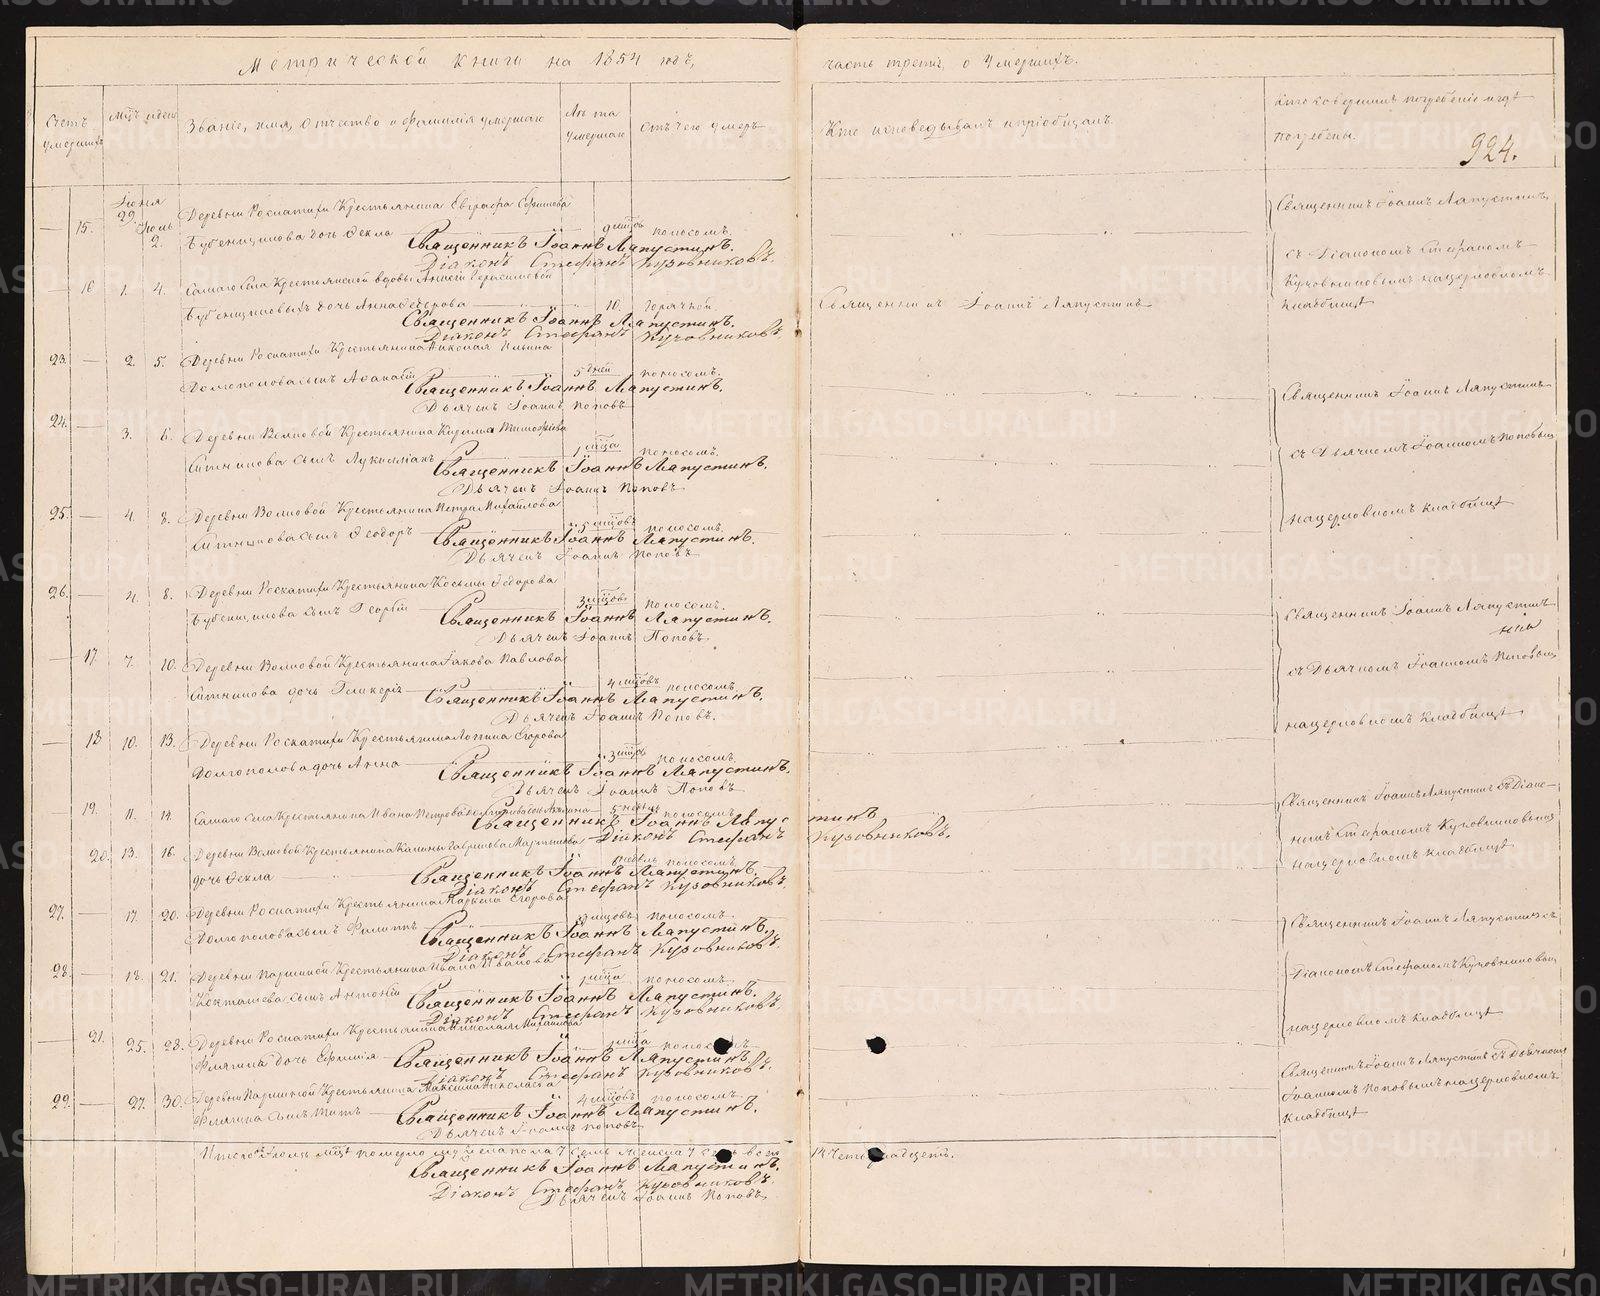 Метрической книги на 1854 годъ,
часть третія, о Умершихъ.
Счетъ умершихъ
Мѣсяцъ и день
Званіе, имя, отчество и фамилія умершаго
Лѣта умершаго
Отъ чего умеръ
Кто исповѣдывалъ и пріобщалъ.
Кто совершилъ погребеніе и гдѣ
погребены.
924.
Іюня
15. 29. Іюль 2. Деревни Роскатихи Крестьянина Евграфа
Бубенщикова дочь Ѳекла поносомъ.
Священникъ Іоаннъ Ляпустинъ.
Діаконъ Стефанъ Кузовниковъ.
16 1. 4. Самаго села Крестьянской вдовы Герасимовой
Бубенщиковыхъ дочь Анна 10. Горячкой
Священникъ Іоаннъ Ляпустинъ
Священникъ Іоаннъ Ляпустинъ.
Діаконъ Стефанъ Кузовниковъ.
23. 2. 5. Деревни Роскатихи Крестьянина Николая Ильина
Долгополова сынъ Аѳанасій 5 дней поносомъ.
Священникъ Іоаннъ Ляпустинъ.
Дьячекъ Іоаннъ Поповъ
24. 3. 6. Деревни Волковой Крестьянина Кирилла Тимофѣева
Ситникова сынъ 1 мѣсяца поносомъ.
Священникъ Іоаннъ Ляпустинъ.
Дьячекъ Іоаннъ Поповъ
25. 4. 8. Деревни Волковой Крестьянина Петра Михайлова
Ситникова сынъ Ѳеодоръ 5 мѣсяцовъ поносомъ.
Священникъ Іоаннъ Ляпустинъ.
Дьячекъ Іоаннъ Поповъ
26. 4. 8. Деревни Роскатихи Крестьянина Косьмы Ѳедорова
Бубенщикова сынъ Георгій 3 мѣсяцовъ поносомъ.
Священникъ Іоаннъ Ляпустинъ.
Дьячекъ Іоаннъ Поповъ.
17. 7. 10. Деревни Волковой Крестьянина Іакова Павлова
Ситникова дочь Гликерія 4 мѣсяцовъ поносомъ
Священникъ Іоаннъ Ляпустинъ.
Дьячекъ Іоаннъ Поповъ.
18 10. 13. Деревни Роскатихи Крестьянина Логина Егорова
Долгополова дочь Анна 3 мѣсяцовъ поносомъ.
Священникъ Іоаннъ Ляпустинъ.
Дьячекъ Іоаннъ Поповъ
19. 11. 14. Самаго села Крестьянина Ивана Петрова 5 недѣль поносомъ
Священникъ Іоаннъ Ляпустинъ
Діаконъ Стефанъ Кузовниковъ.
20. 13. 16. Деревни Волковой Крестьянина Гаврилова
дочь Ѳекла недѣль поносомъ.
Священникъ Іоаннъ Ляпустинъ.
Діаконъ Стефанъ Кузовниковъ.
27. 17. 20. Деревни Роскатихи Крестьянина Маркела Егорова
Долгополова сынъ Филиппъ мѣсяцовъ поносомъ.
Священникъ Іоаннъ Ляпустинъ.
Діаконъ Стефанъ Кузовниковъ.
28. 18. 21. Деревни Паршиной Крестьянина Ивана Иванова
сынъ Антоній мѣсяца поносомъ.
Священникъ Іоаннъ Ляпустинъ.
Діаконъ Стефанъ Кузовниковъ.
21. 25. 28. Деревни Роскатихи Крестьянина Николая Михайлова
Флягина дочь Ефимія мѣсяца поносомъ
Священникъ Іоаннъ Ляпустинъ.
Діаконъ Стефанъ Кузовниковъ.
29. 27. 30. Деревни Паршиной Крестьянина Максима Николаева
Флягина сынъ Титъ 4 мѣсяцовъ поносомъ.
Священникъ Іоаннъ Ляпустинъ.
Дьячекъ Іоаннъ Поповъ.
Итого въ Іюлѣ мѣсяцѣ померло мужеска пола 7 семь женска 7 семь всего 14 четырнадцеть.
Священникъ Іоаннъ Ляпустинъ.
Діаконъ Стефанъ Кузовниковъ.
Дьячекъ Іоаннъ Поповъ.
Священникъ Іоаннъ Ляпустинъ
съ Діакономъ Стефаномъ
Кузовниковымъ на церковномъ
кладбищѣ
Священникъ Іоаннъ Ляпустинъ
съ Дьячкомъ Іоанномъ Поповымъ
на церковномъ кладбищѣ
Священникъ Іоаннъ Ляпустинъ
съ Дьячкомъ Іоанномъ Поповымъ
на церковномъ кладбищѣ
Священникъ Іоаннъ Ляпустинъ съ Діако-
номъ Стефаномъ Кузовниковымъ
на церковномъ кладбищѣ
Священникъ Іоаннъ Ляпустинъ съ
Діакономъ Стефаномъ Кузовниковымъ
на церковномъ кладбищѣ
Священникъ Іоаннъ Ляпустинъ съ Дьячкомъ
Іоанномъ Поповымъ на церковномъ
кладбищѣ
METRIKI.GASO-URAL.RU